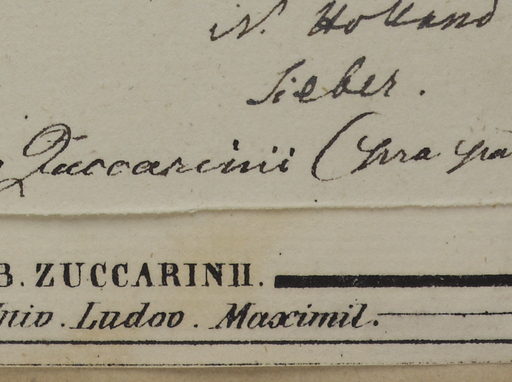 N. Holland
Sieber.
Zuccarinii (
B. ZUCCARINII.
Univ. Ludov. Maximil.